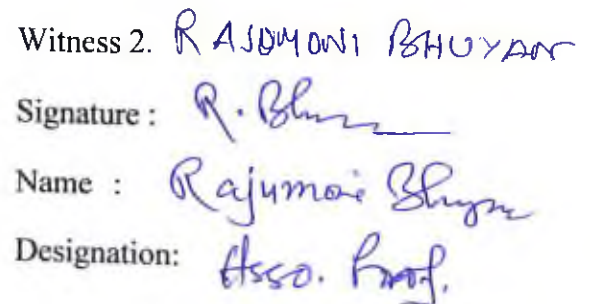 Witness 2. RAJUMONI BHUYAN
Signature : R. Bhu
Name : Rajumoni Bhuyan
Designation: Asso. Prof.